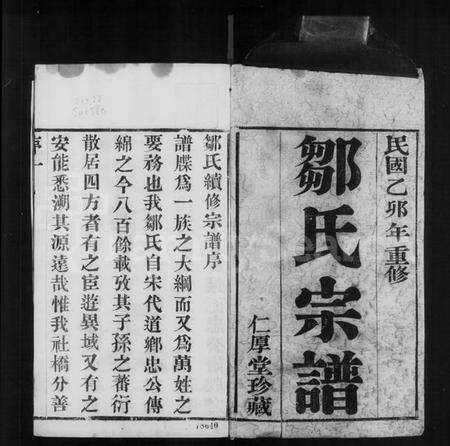 民國乙卯年重修
鄒氏宗譜
仁厚堂珍藏
鄒氏續修宗譜序
譜牒爲一族之大綱而又爲萬姓之
要務也我鄒氏自宋代道鄉忠公傳
綿之今八百餘載攷其子孫之蕃衍
散居四方者有之宦遊異域又有之
安能悉溯其源遠哉惟我社橋分善
序一